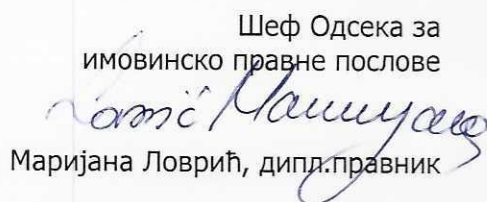 Шеф Одсека за
имовинско правне послове
Ловрић Маријана
Маријана Ловрић, дипл.правник